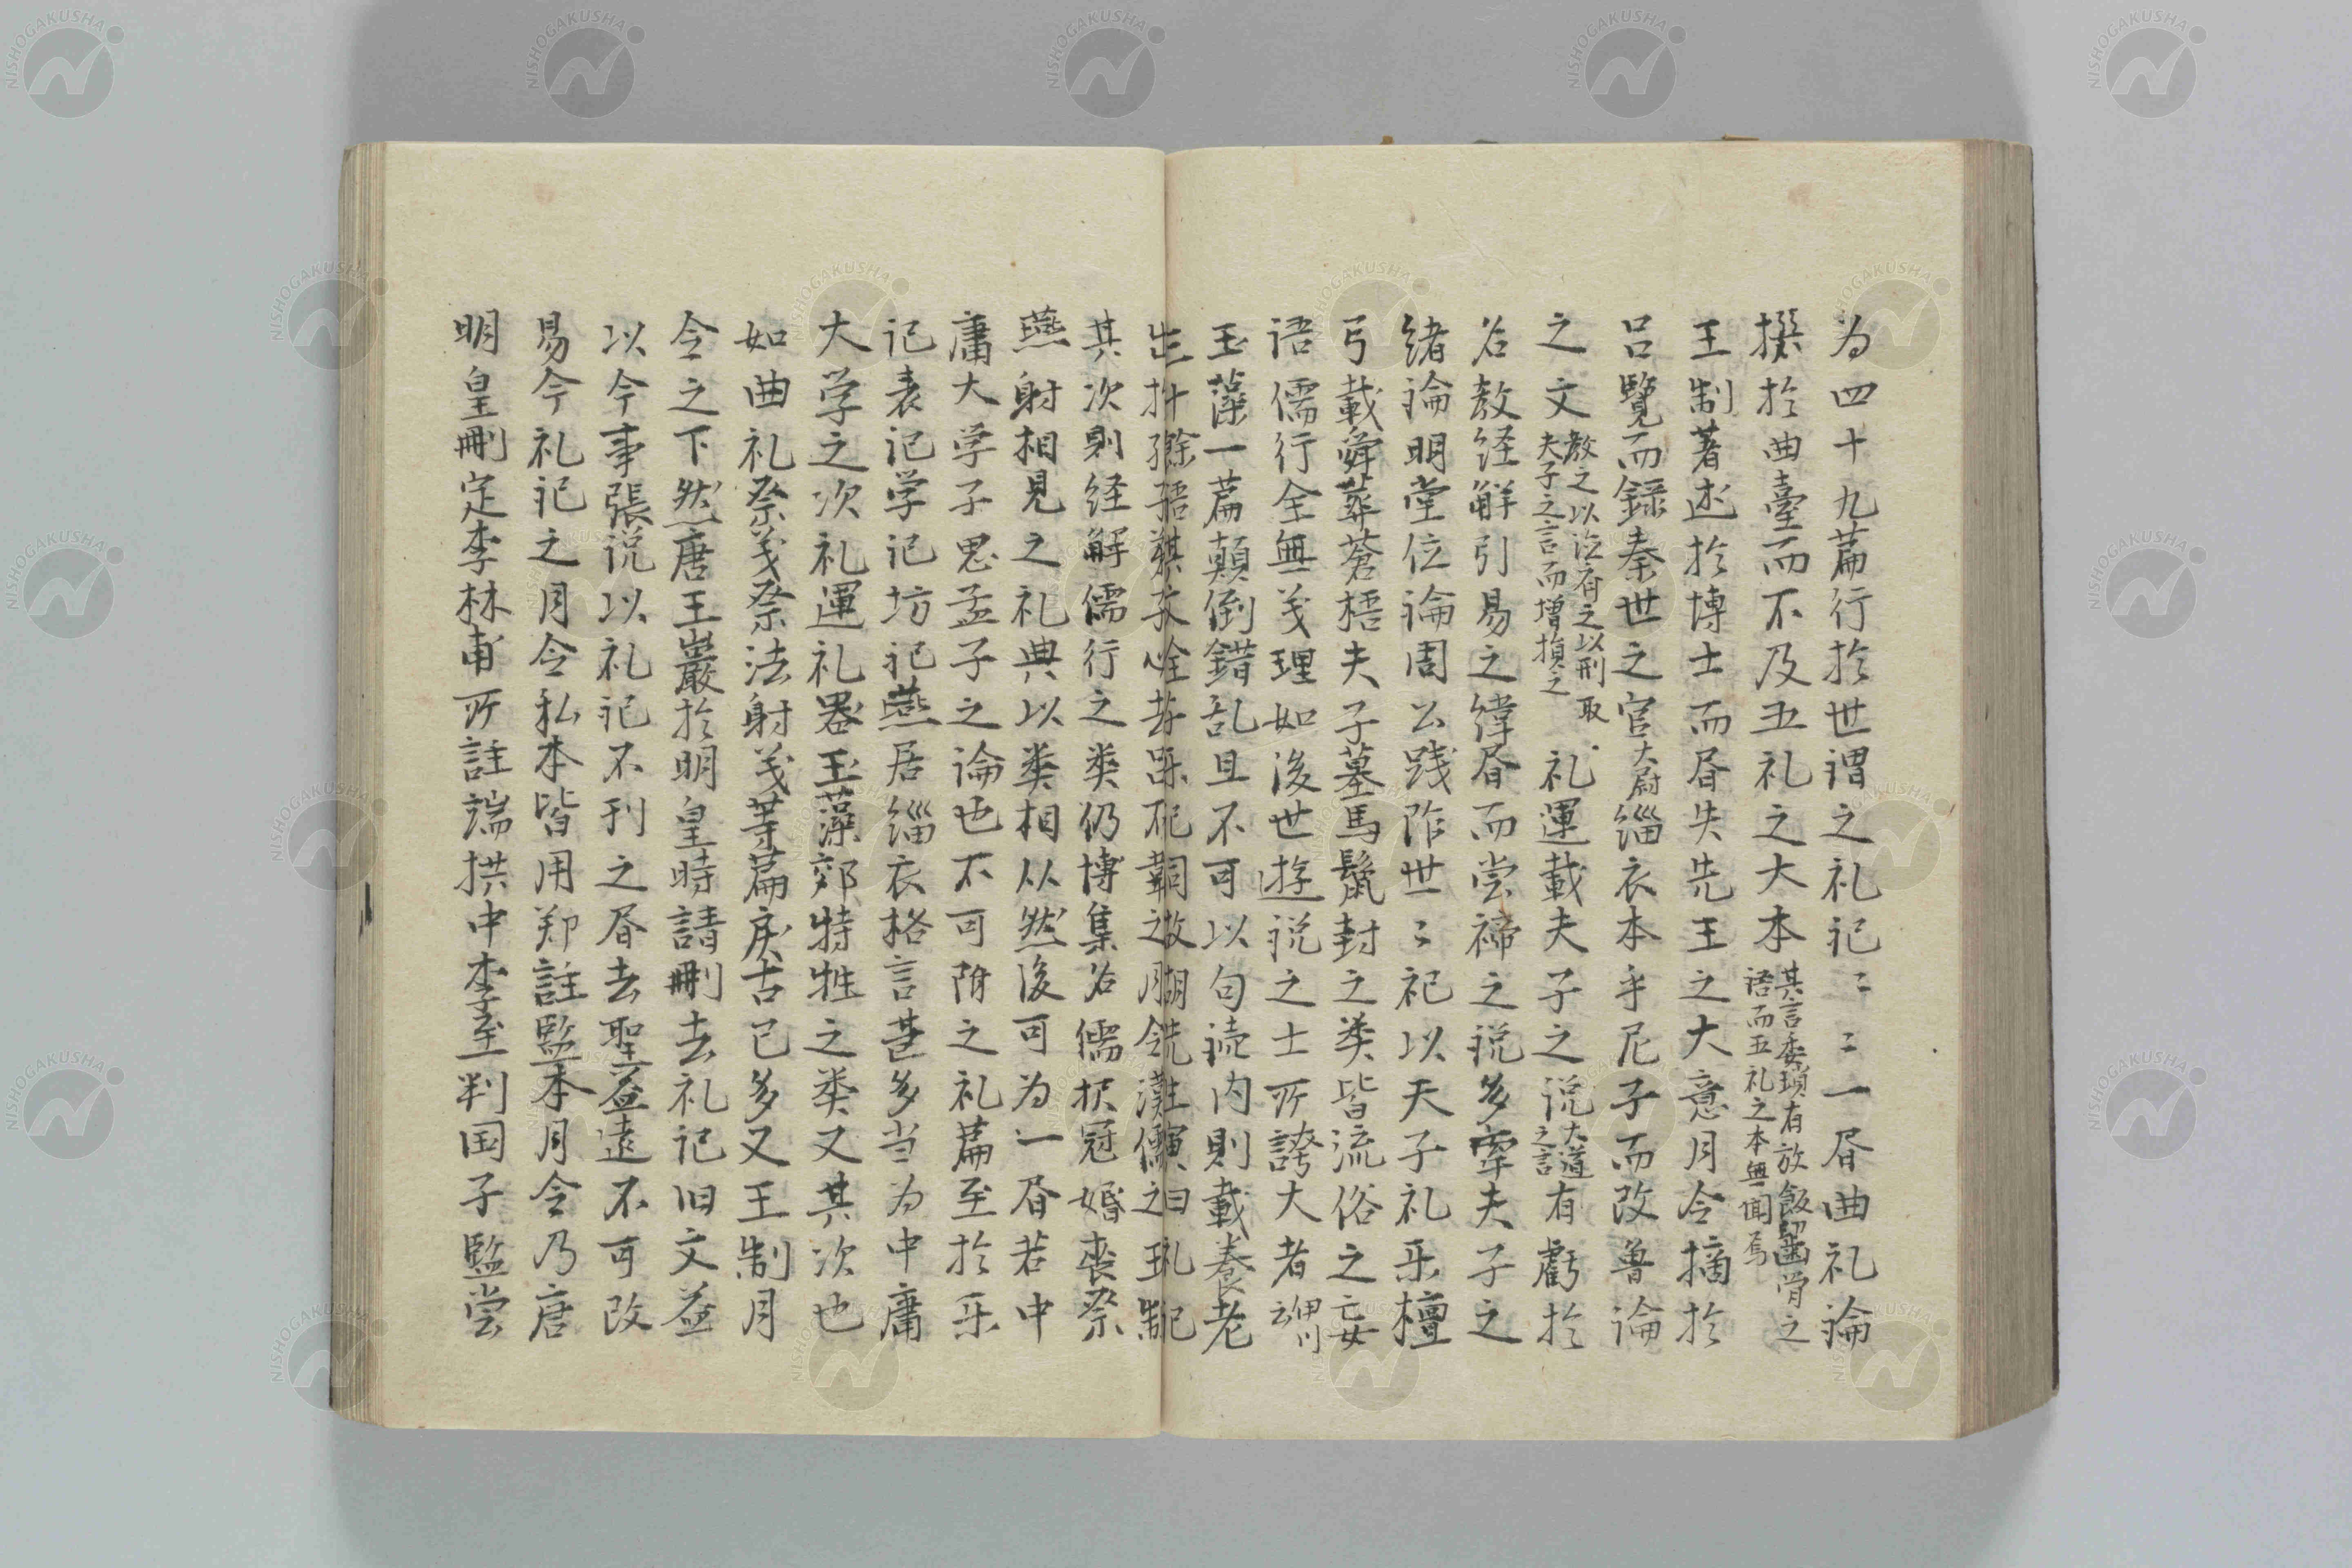 为四十九篇行於世谓之礼记〻〻一昏曲礼论
撰於曲臺而不及五礼之大本其言委瑣有放飯齧骨之
语而五礼之本無聞焉
王制著述於博士而昏失先王之大意月令摘於
吕覽而録秦世之官大尉緇衣本乎尼子而改鲁论
之文教之以
夫子之言而增損之礼運載夫子之说大道
之言有虧於
名教経觧引易之緯昏而尝褅之说多牽夫子之
緒论明堂位论周公践阼世〻记以天子礼乐檀
弓載舜葬蒼梧夫子墓馬鬛封之类皆流俗之妄
语儒行全無义理如後世遊说之士所誇大者伊川
云
玉藻一篇顛倒錯乱且不可以句读内則載養老
其次則経解儒行之类仍博集名儒択冠婚丧祭
燕射相見之礼典以类相从然後可为一昏若中
庸大学子思孟子之論也不可附之礼篇至於乐
记表记学记坊记燕居緇衣格言甚多当为中庸
大学之次礼運礼器玉藻郊特牲之类又其次也
如曲礼祭义祭法射义䓁篇戾古已多又王制月
令之下然唐王巖於明皇時請刪去礼记旧文益
以今事張说以礼记不刊之昏去聖益遠不可改
易今礼记之月令私本皆用郑註監本月令乃唐
明皇刪定李林甫所註端拱中李至判国子監尝